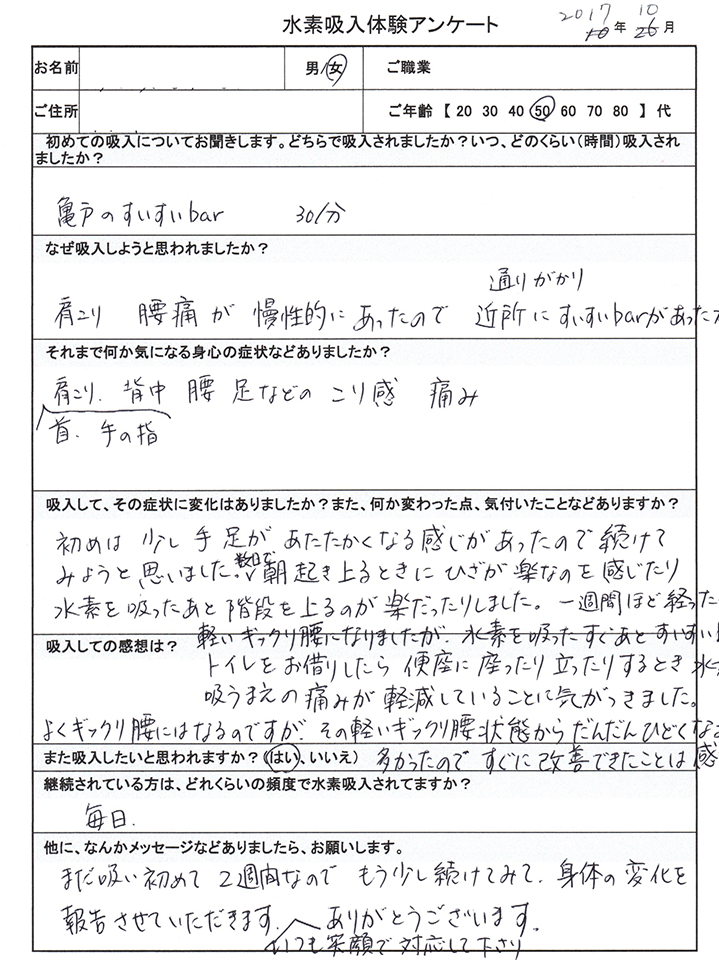 水素吸入体験アンケート 2017年 10月
10 26
お名前 男/女 ご職業
ご住所 ご年齢【 20 30 40 50 60 70 80 】代
初めての吸入についてお聞きします。どちらで吸入されましたか？いつ、どのくらい（時間）吸入され
ましたか？
亀戸のすいすいbar 30分
なぜ吸入しようと思われましたか？
通りがかり
肩こり 腰痛が 慢性的にあったので 近所にすいすいbarがあった
それまで何か気になる身心の症状などありましたか？
肩こり、背中 腰 足などの こり感 痛み
首、手の指
吸入して、その症状に変化はありましたか？また、何か変わった点、気付いたことなどありますか？
初めは 少し 手足が あたたかくなる感じがあったので続けて
みようと思いました。数日で朝起き上るときに ひざが楽なのを感じたり
水素を吸ったあと階段を上るのが楽だったりしました。一週間ほど経った
吸入しての感想は？ 軽いギックリ腰になりましたが、水素を吸ったすぐあと すいすい
トイレをお借りしたら 便座に座ったり立ったりするとき 水
吸うまえの痛みが軽減していることに気がつきました。
よくギックリ腰にはなるのですが、その軽いギックリ腰状態からだんだんひどくな
また吸入したいと思われますか？（はい、いいえ） 多かったので すぐに改善できたことは 感
継続されている方は、どれくらいの頻度で水素吸入されてますか？
毎日.
他に、なんかメッセージなどありましたら、お願いします。
まだ吸い初めて 2週間なので もう少し続けてみて、身体の変化を
報告させていただきます。 ありがとうございます。
いつも笑顔で対応して下さり